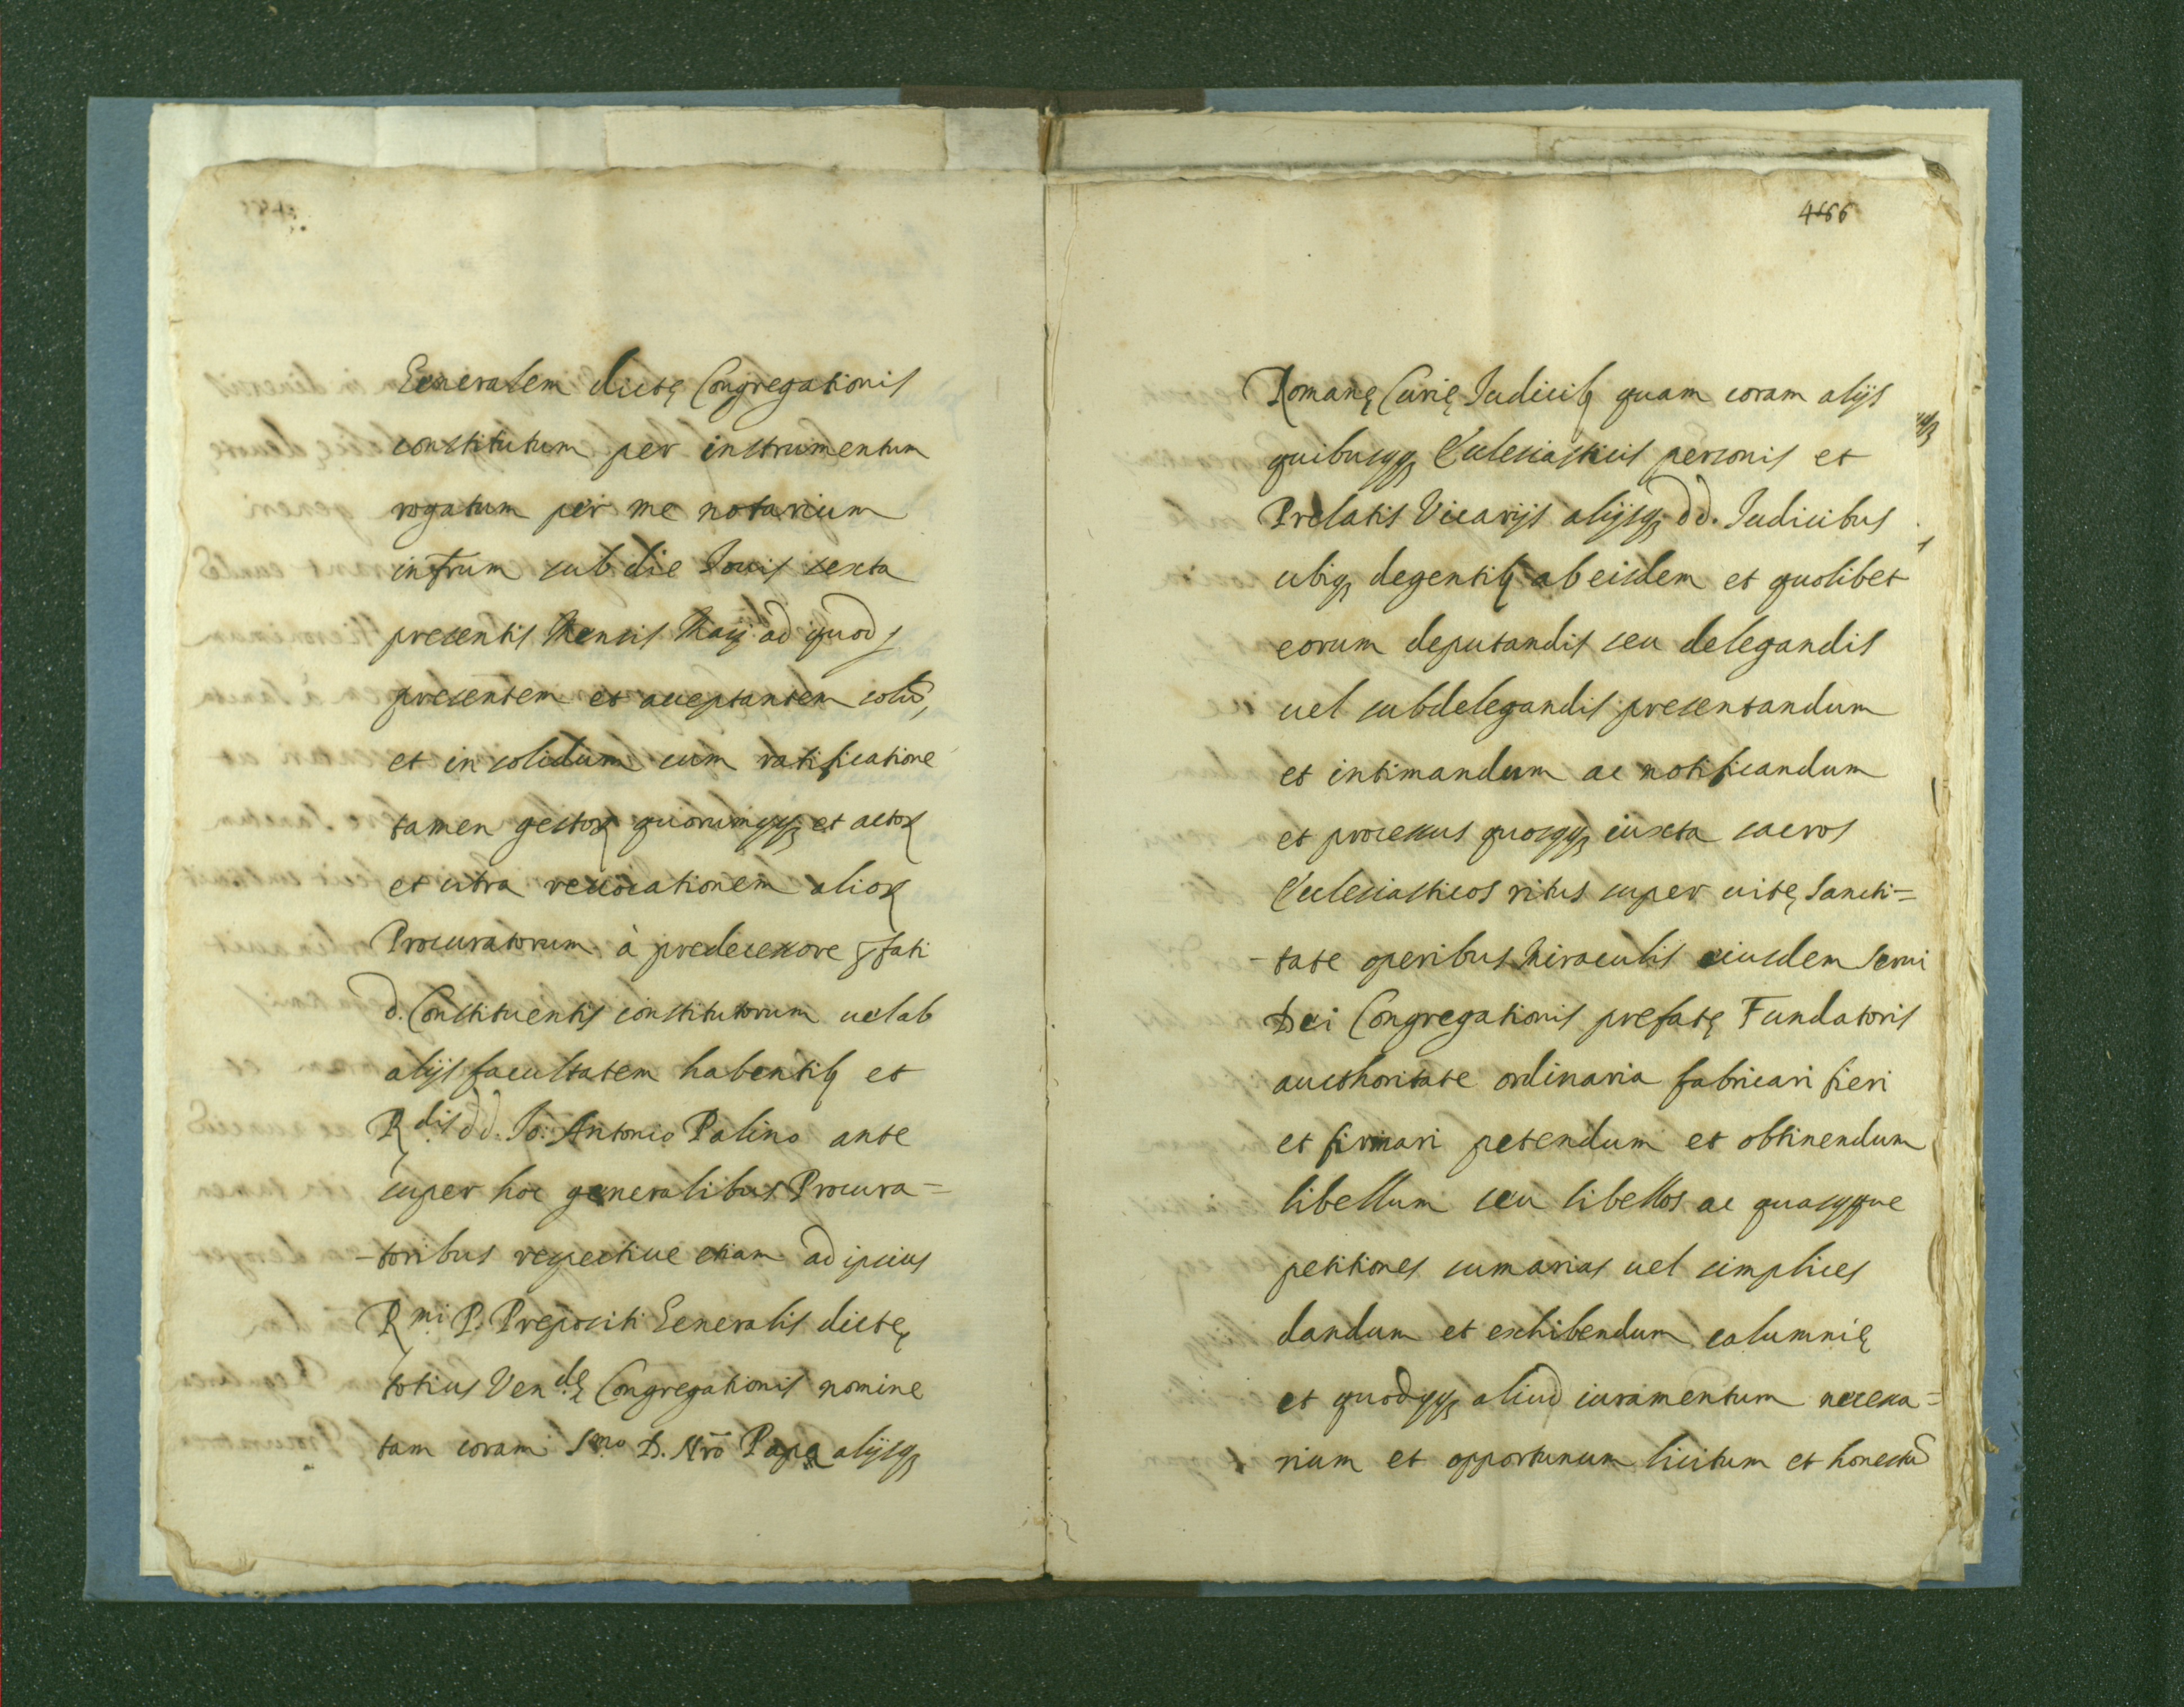 Generalem dictę Congregationis
constitutum per instrumentum
rogatum per me notarium
infrum sub die Iouis sexta
presentis Mensis Maij ad quod
presentem et acceptantem solũ,
et in solidum cum ratificatione
tamen gestoꝝ quorumqqꝫ et actoꝝ
et citra reuocationem alioꝝ
Procuratorum à predecessore pfati
d. Constituentis constitutorum uel ab
alijs facultatem habentibꝫ et
Rdis dd. Io: Antonio Palino ante
super hoc generalibus Procura=
-toribus respectiue etiam ad ipsius
Rmi P. Prepositi Generalis dictę
totius Vendę Congregationis nomine
tam coram Smo D. Nrõ Papa alijsqꝫ
4666
Romanę Curię Iudicibꝫ quam coram alijs
quibuscqꝫ Ecclesiasticis personis et
Prelatis Vicarijs alijsqꝫ dd. Iudicibus
ubiqꝫ degentibꝫ ab eisdem et quolibet
eorum deputandis seu delegandis
uel subdelegandis presentandum
et intimandum ac notificandum
et processus quoscqꝫ iuxta sacros
Ecclesiasticos ritus super uitę Sancti=
-tate operibus Miraculis eiusdem Serui
Dei Congregationis prefatę Fundatoris
aucthoritate ordinaria fabricari fieri
et firmari petendum et obtinendum
libellum seu libellos ac quascqque
petitiones sumarias uel simplices
dandum et exhibendum calumnię
et quodcqꝫ aliud iuramentum necessa=
rium et opportunum licitum et honestũ